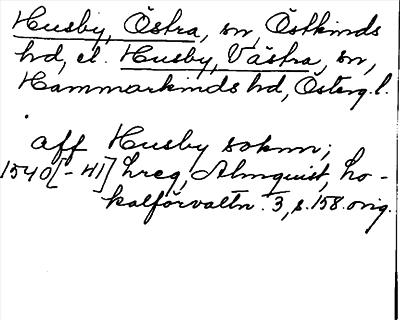 Husby, Östra, sn, Östkinds
hd, el. Husby, Västra, sn,
Hammarkinds hd, Österg.l.
aff Husby soknn;
1540[-41] hreg, Almquist, Lo-
kalförvaltn. 3, s. 158. orig.